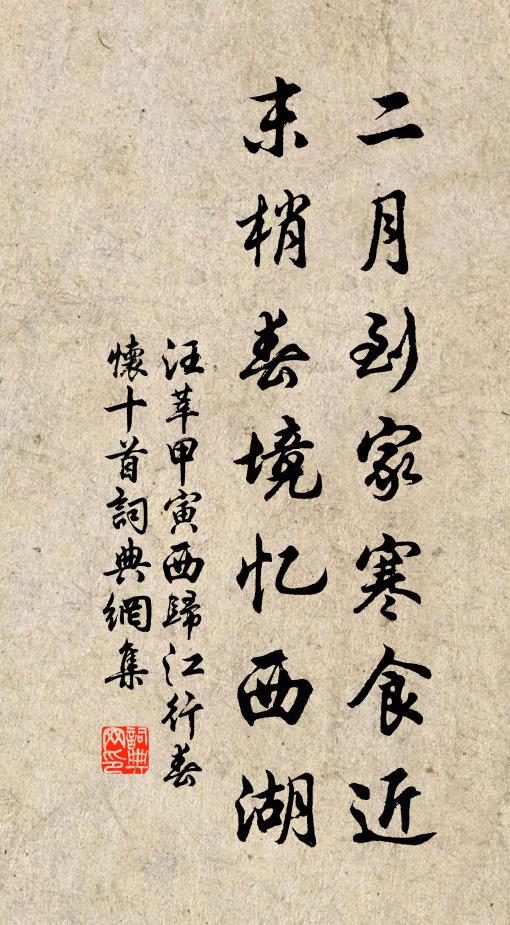 二月到家寒食近
末梢春境忆西湖
汪莘甲寅西歸江行春
懷十首詞典網集
詞典
网印